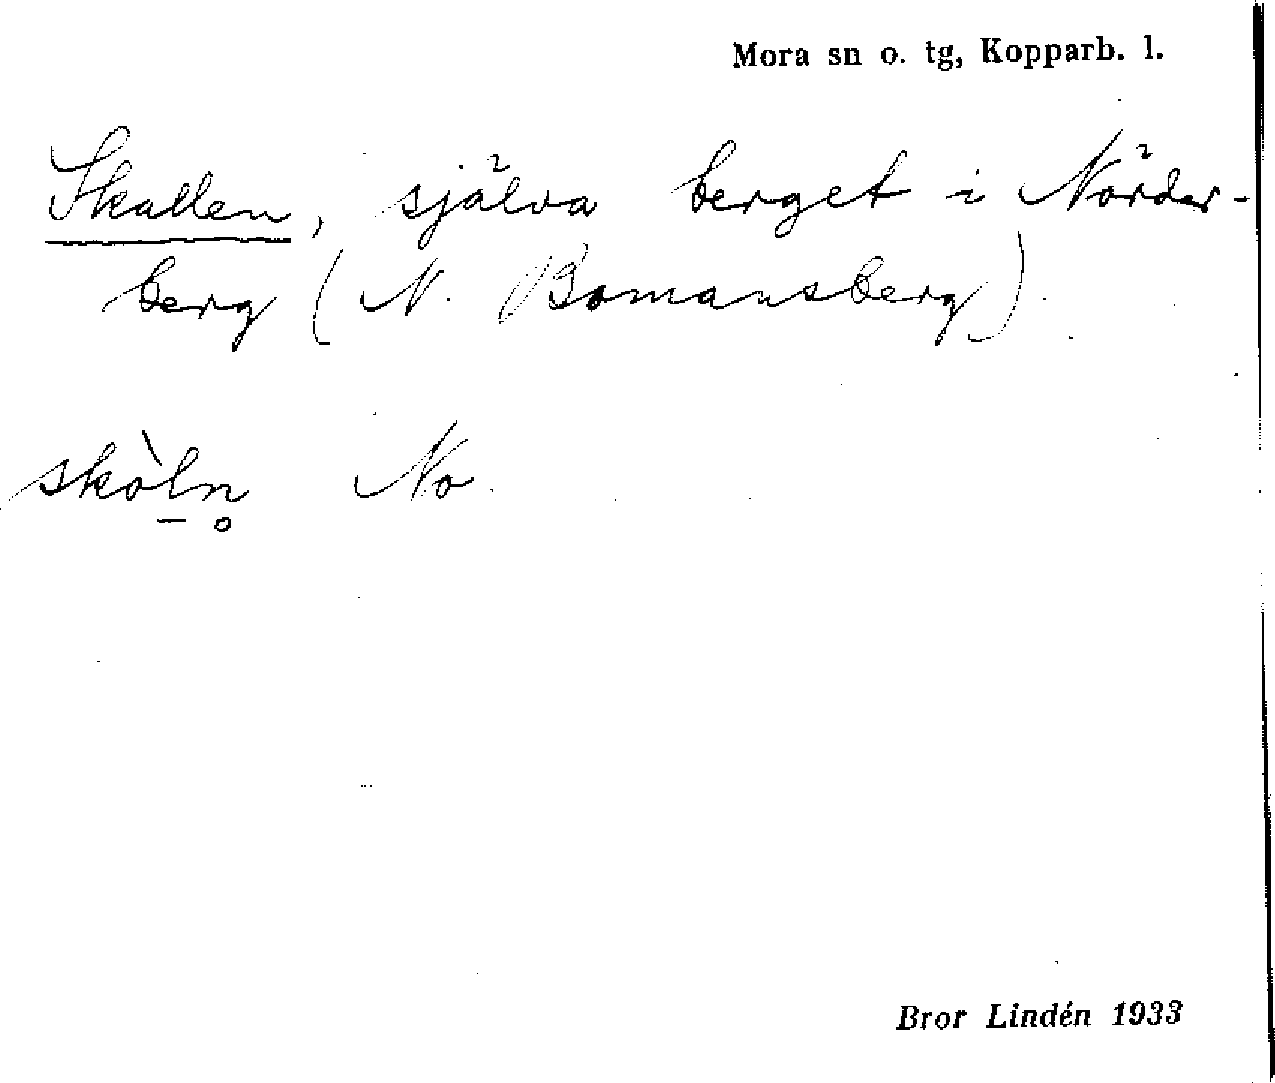 Mora sn o. tg, Kopparb. l.
Skallen, själva berget i Nörder-
berg (N. Bomansberg)
skòl̠n̥ No
Bror Lindén 1933